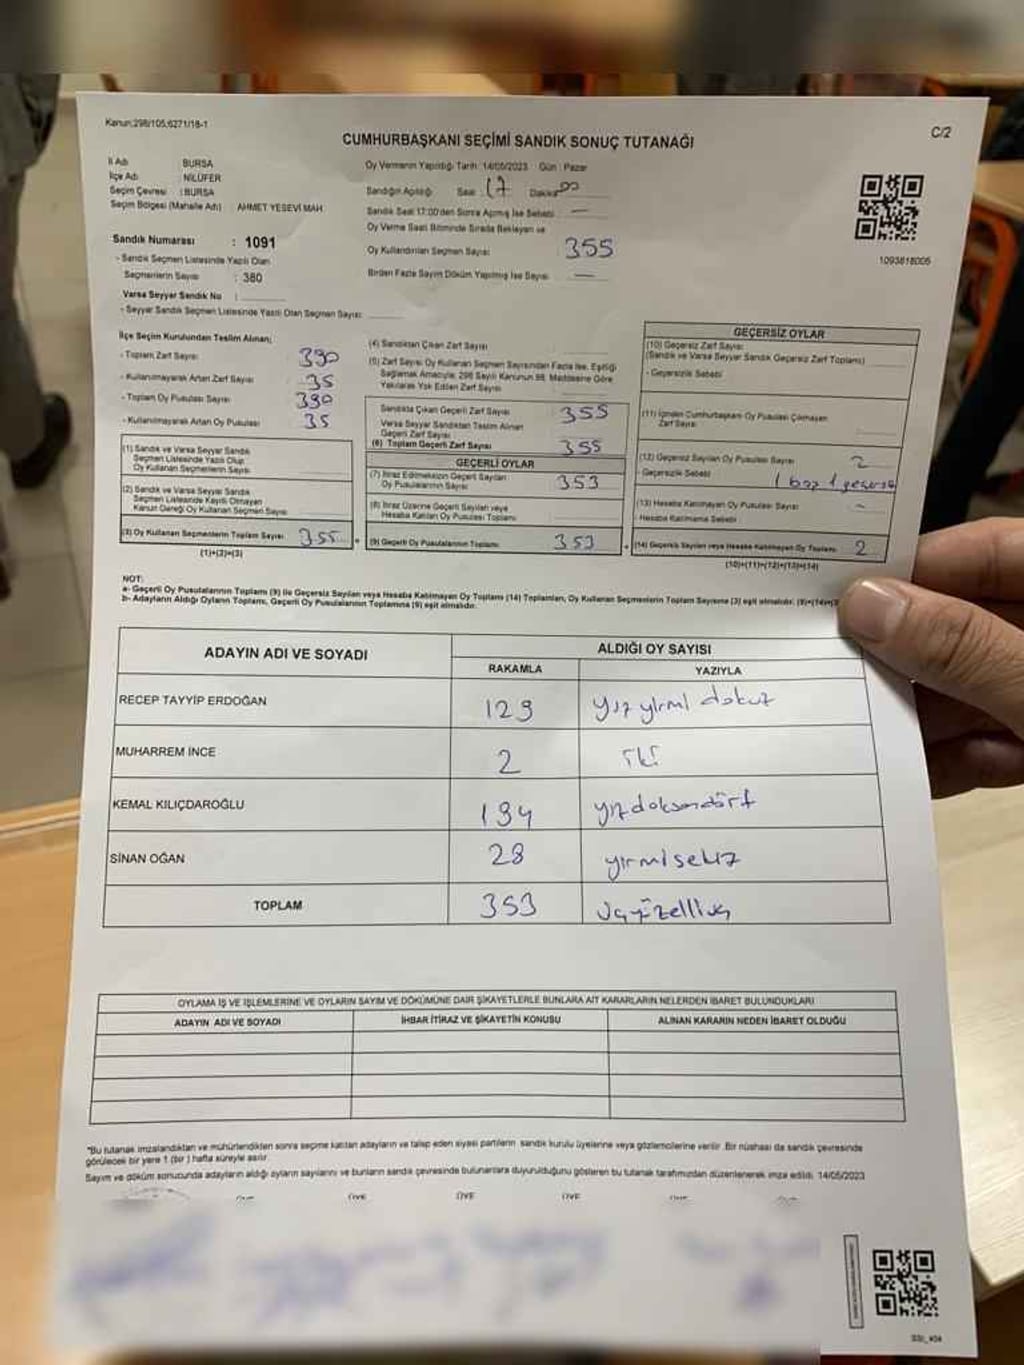 Kanun;298/105;6271/18-1
C/2
CUMHURBAŞKANI SEÇİMİ SANDIK SONUÇ TUTANAĞI
İl Adı BURSA
İlçe Adı NİLÜFER
Seçim Çevresi : BURSA
Seçim Bölgesi (Mahalle Adı) : AHMET YESEVİ MAH
Sandık Numarası : 1091
- Sandık Seçmen Listesinde Yazılı Olan
Seçmenlerin Sayısı : 380
Varsa Seyyar Sandık No :
- Seyyar Sandık Seçmen Listesinde Yazılı Olan Seçmen Sayısı:
Oy Vermenin Yapıldığı Tarih : 14/05/2023 Gün : Pazar
Sandığın Açılışı Saat : 17 Dakika 00
Sandık Saat 17:00'den Sonra Açılmış İse Sebebi —
Oy Verme Saati Bitiminde Sırada Bekleyen ve
Oy Kullandırılan Seçmen Sayısı: 355
Birden Fazla Sayım Döküm Yapılmış İse Sayısı —
1093818005
İlçe Seçim Kurulundan Teslim Alınan;
- Toplam Zarf Sayısı: 390
- Kullanılmayarak Artan Zarf Sayısı 35
- Toplam Oy Pusulası Sayısı 390
- Kullanılmayarak Artan Oy Pusulası: 35
(1) Sandık ve Varsa Seyyar Sandık
Seçmen Listesinde Yazılı Olup
Oy Kullanan Seçmenlerin Sayısı
(2) Sandık ve Varsa Seyyar Sandık
Seçmen Listesinde Kayıtlı Olmayan
Kanun Gereği Oy Kullanan Seçmen Sayısı
(3) Oy Kullanan Seçmenlerin Toplam Sayısı 355
(1)+(2)=(3)
(4) Sandıktan Çıkan Zarf Sayısı
(5) Zarf Sayısı Oy Kullanan Seçmen Sayısından Fazla İse, Eşitliği
Sağlamak Amacıyla; 298 Sayılı Kanunun 98. Maddesine Göre
Yakılarak Yok Edilen Zarf Sayısı
Sandıkta Çıkan Geçerli Zarf Sayısı 355
Varsa Seyyar Sandıktan Teslim Alınan
Geçerli Zarf Sayısı
(6) Toplam Geçerli Zarf Sayısı 355
GEÇERLİ OYLAR
(7) İtiraz Edilmeksizin Geçerli Sayılan
Oy Pusulalarının Sayısı 353
(8) İtiraz Üzerine Geçerli Sayılan veya
Hesaba Katılan Oy Pusulası Toplamı
(9) Geçerli Oy Pusulalarının Toplamı 353
GEÇERSİZ OYLAR
(10) Geçersiz Zarf Sayısı
(Sandık ve Varsa Seyyar Sandık Geçersiz Zarf Toplamı)
- Geçersizlik Sebebi
(11) İçinden Cumhurbaşkanı Oy Pusulası Çıkmayan
Zarf Sayısı
(12) Geçersiz Sayılan Oy Pusulası Sayısı 2
- Geçersizlik Sebebi 1 boş 1 geçersiz
(13) Hesaba Katılmayan Oy Pusulası Sayısı –
Hesaba Katılmama Sebebi
(14) Geçersiz Sayılan veya Hesaba Katılmayan Oy Toplamı 2
(10)+(11)+(12)+(13)=(14)
NOT:
a- Geçerli Oy Pusulalarının Toplamı (9) ile Geçersiz Sayılan veya Hesaba Katılmayan Oy Toplamı (14) Toplamları, Oy Kullanan Seçmenlerin Toplam Sayısına (3) eşit olmalıdır.
b- Adayların Aldığı Oyların Toplamı, Geçerli Oy Pusulalarının Toplamına (9) eşit olmalıdır.
ADAYIN ADI VE SOYADI ALDIĞI OY SAYISI
RAKAMLA YAZIYLA
RECEP TAYYİP ERDOĞAN 129 yüz yirmi dokuz
MUHARREM İNCE 2 iki
KEMAL KILIÇDAROĞLU 194 yüzdoksandört
SİNAN OĞAN 28 yirmisekiz
TOPLAM 353 üçyüzelliüç
OYLAMA İŞ VE İŞLEMLERİNE VE OYLARIN SAYIM VE DÖKÜMÜNE DAİR ŞİKAYETLERLE BUNLARA AİT KARARLARIN NELERDEN İBARET BULUNDUKLARI
ADAYIN ADI VE SOYADI İHBAR İTİRAZ VE ŞİKAYETİN KONUSU ALINAN KARARIN NEDEN İBARET OLDUĞU
*Bu tutanak imzalandıktan ve mühürlendikten sonra seçime katılan adayların ve talep eden siyasi partilerin sandık kurulu üyelerine veya gözlemcilerine verilir. Bir nüshası da sandık çevresinde
görülecek bir yere 1 (bir ) hafta süreyle asılır.
Sayım ve döküm sonucunda adayların aldığı oyların sayılarını ve bunların sandık çevresinde bulunanlara duyurulduğunu gösteren bu tutanak tarafımızdan düzenlenerek imza edildi. 14/05/2023
ÜYE ÜYE ÜYE ÜYE ÜYE